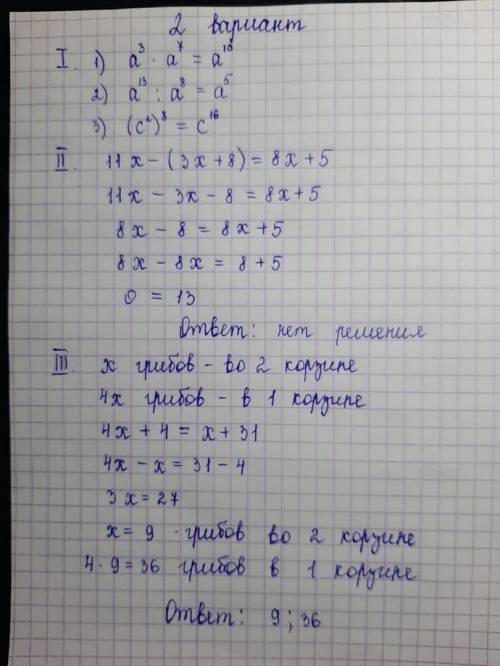 2 вариант
I. 1) a³ · a⁷ = a¹⁰
2) a¹³ : a⁸ = a⁵
3) (c²)⁸ = c¹⁶
II. 11x - (3x + 8) = 8x + 5
11x - 3x - 8 = 8x + 5
8x - 8 = 8x + 5
8x - 8x = 8 + 5
0 = 13
Ответ: нет решения
III. x грибов - во 2 корзине
4x грибов - в 1 корзине
4x + 4 = x + 31
4x - x = 31 - 4
3x = 27
x = 9 - грибов во 2 корзине
4 · 9 = 36 грибов в 1 корзине
Ответ: 9; 36